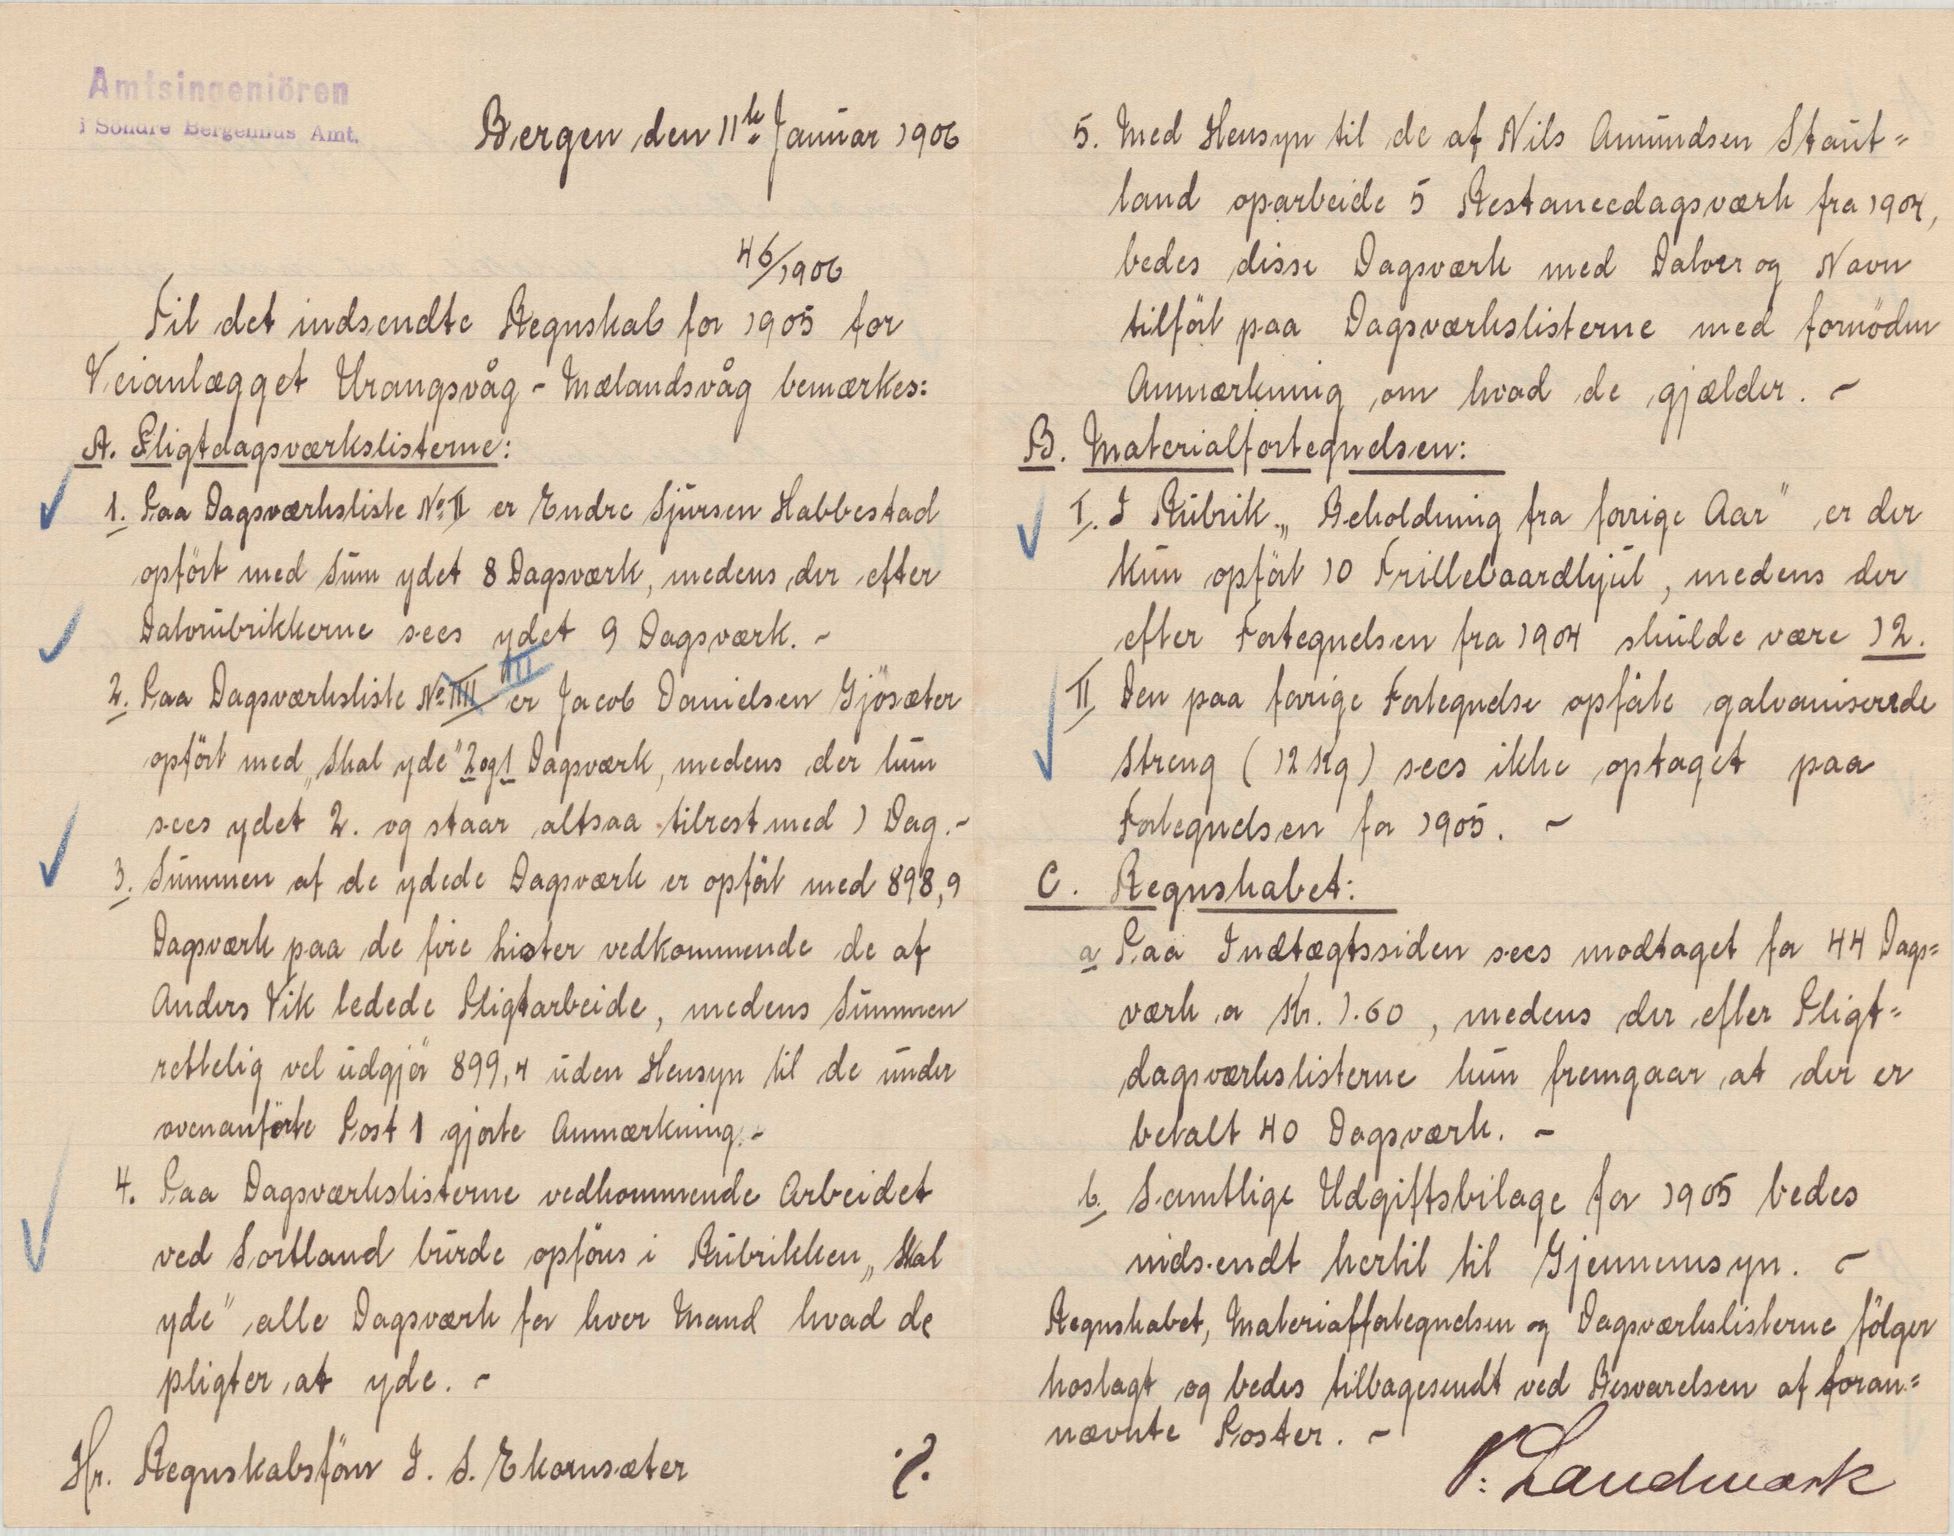 Amtsingeniören
i Söndre Bergenhus Amt.
Bergen den 11te Januar 1906
46/1906
Til det indsendte Regnskab for 1905 for
Veianlægget Urangsvåg - Mælandsvåg bemærkes:
A. Pligtdagsværkslisterne:
1. Paa Dagsværksliste No II er Endre Sjursen Habbestad
opfört med Sum ydet 8 Dagsværk, medens der efter
Datorubrikkerne sees ydet 9 Dagsværk. -
III
2. Paa Dagsværksliste No IIII er Jacob Danielsen Gjösæter
opfört med „Skal yde" 2 og 1 Dagsværk, medens der kun
sees ydet 2. og staar altsaa tilrest med 1 Dag. -
3. Summen af de ydede Dagsværk er opfört med 898,9
Dagsværk paa de fire Lister vedkommende de af
Anders Vik ledede Pligtarbeide, medens Summen
rettelig vel udgjör 899,4 uden Hensyn til de under
ovenanförte Post 1 gjorte Anmærkning. -
4. Paa Dagsværkslisterne vedkommende Arbeidet
ved Sortland burde opföres i Rubrikken „Skal
yde" alle Dagsværk for hver Mand hvad de
pligter at yde. -
Hr. Regnskabsförer I. S. Ekornsæter
./.
5. Med Hensyn til de af Nils Amundsen Staut=
land oparbeide 5 Restancedagsværk fra 1904,
bedes disse Dagsværk med Datoer og Navn
tilfört paa Dagsværkslisterne med fornöden
Anmærkning om hvad de gjælder. -
B. Materialfortegnelsen:
I. I Rubrik „Beholdning fra forrige Aar" er der
kun opfört 10 Trillebaardhjul, medens der
efter Fortegnelsen fra 1904 skulde være 12.
II Den paa forrige Fortegnelse opförte galvaniserede
Streng (12 Kg) sees ikke optaget paa
Fortegnelsen for 1905. -
C. Regnskabet:
a Paa Indtægtssiden sees modtaget for 44 Dags=
værk a Kr. 1.60, medens der efter Pligt=
dagsværkslisterne kun fremgaar at der er
betalt 40 Dagsværk. -
b. Samtlige Udgiftsbilage for 1905 bedes
indsendt hertil til Gjennemsyn. -
Regnskabet, Materialfortegnelsen og Dagsværkslisterne fölger
hoslagt og bedes tilbagesendt ved Besvarelsen af foran=
nævnte Poster. -
P. Landmark